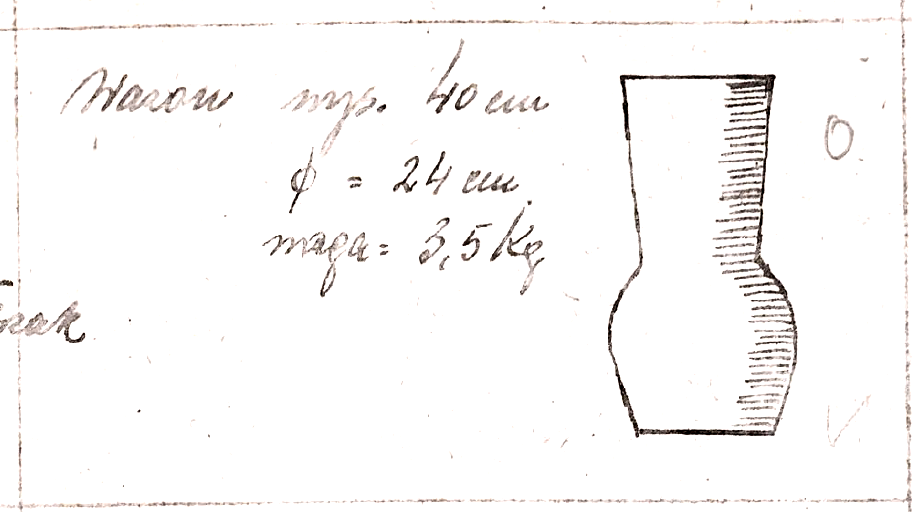 Wazon wys. 40 cm
O
ϕ = 24 cm
waga = 3,5 Kg